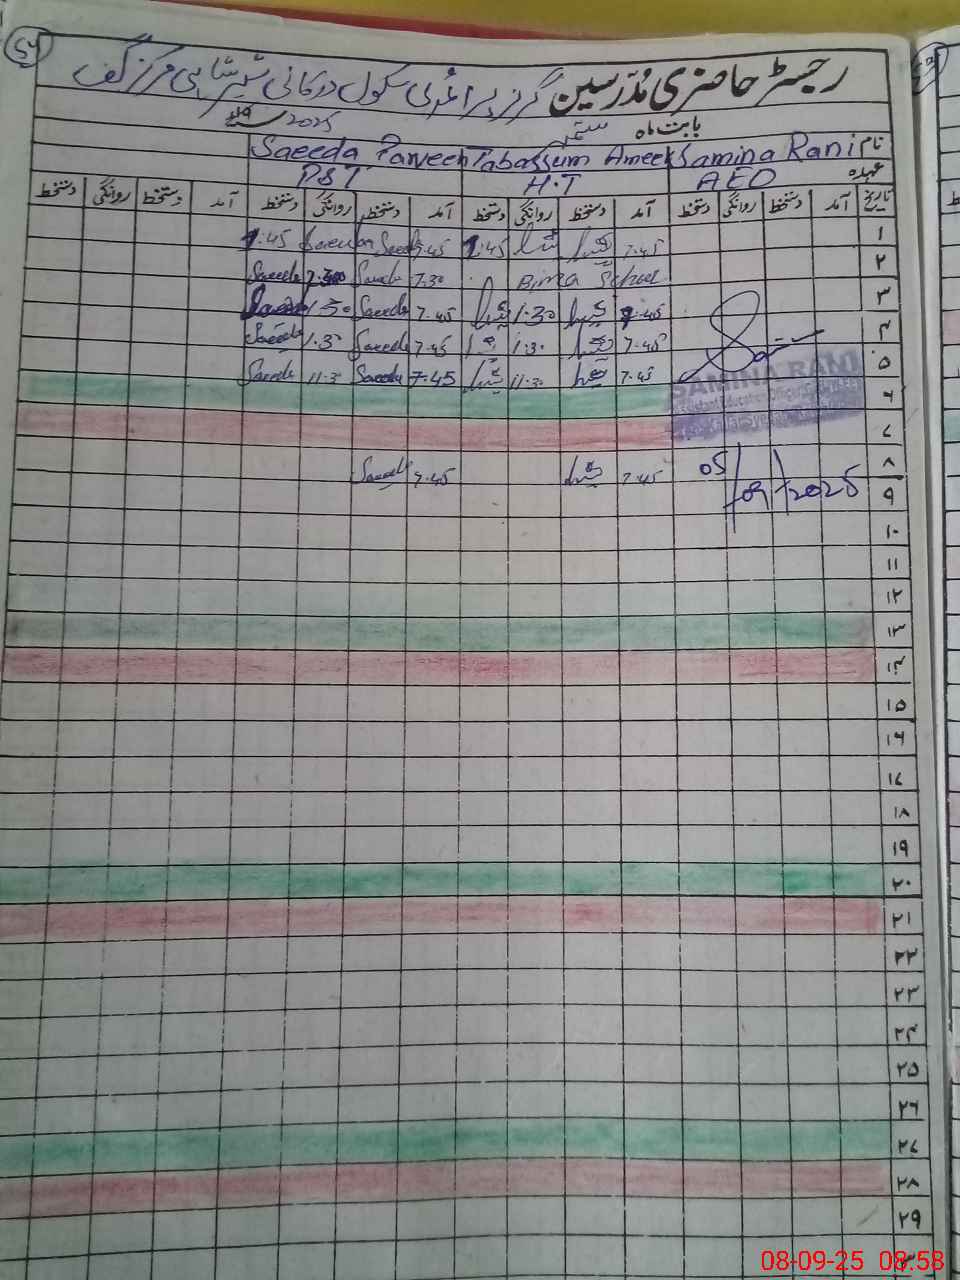 ۵۶
رجسٹر حاضری مُدرسین گرلز پرائمری سکول درکالی شیر شاہی مرکز گف
بابت ماہ ستمبر 2025
نام Samina Rani Tabassum Ameer Saeeda Parveen
عہدہ AEO H.T PST
تاریخ آمد دستخط روانگی دستخط آمد دستخط روانگی دستخط آمد دستخط روانگی دستخط آمد دستخط روانگی دستخط
۱ 7.45 1:45 7.45 Saeeda 1:45
۲ Bima School 7.30 Saeeda Saeeda
۳ 7.45 1.30 7.45 Saeeda 1.30 Saeeda
۴ 7.45 1.30 7.45 Saeeda 1.30 Saeeda
۵ 7.45 11.30 7.45 Saeeda 11.30 Saeeda
SAMINA RANI
Assistant Education Officer
۶
۷
۸ 7.45 7.45 Saeeda
05/09/2025
۹
۱۰
۱۱
۱۲
۱۳
۱۴
۱۵
۱۶
۱۷
۱۸
۱۹
۲۰
۲۱
۲۲
۲۳
۲۴
۲۵
۲۶
۲۷
۲۸
۲۹
08-09-25 08:58